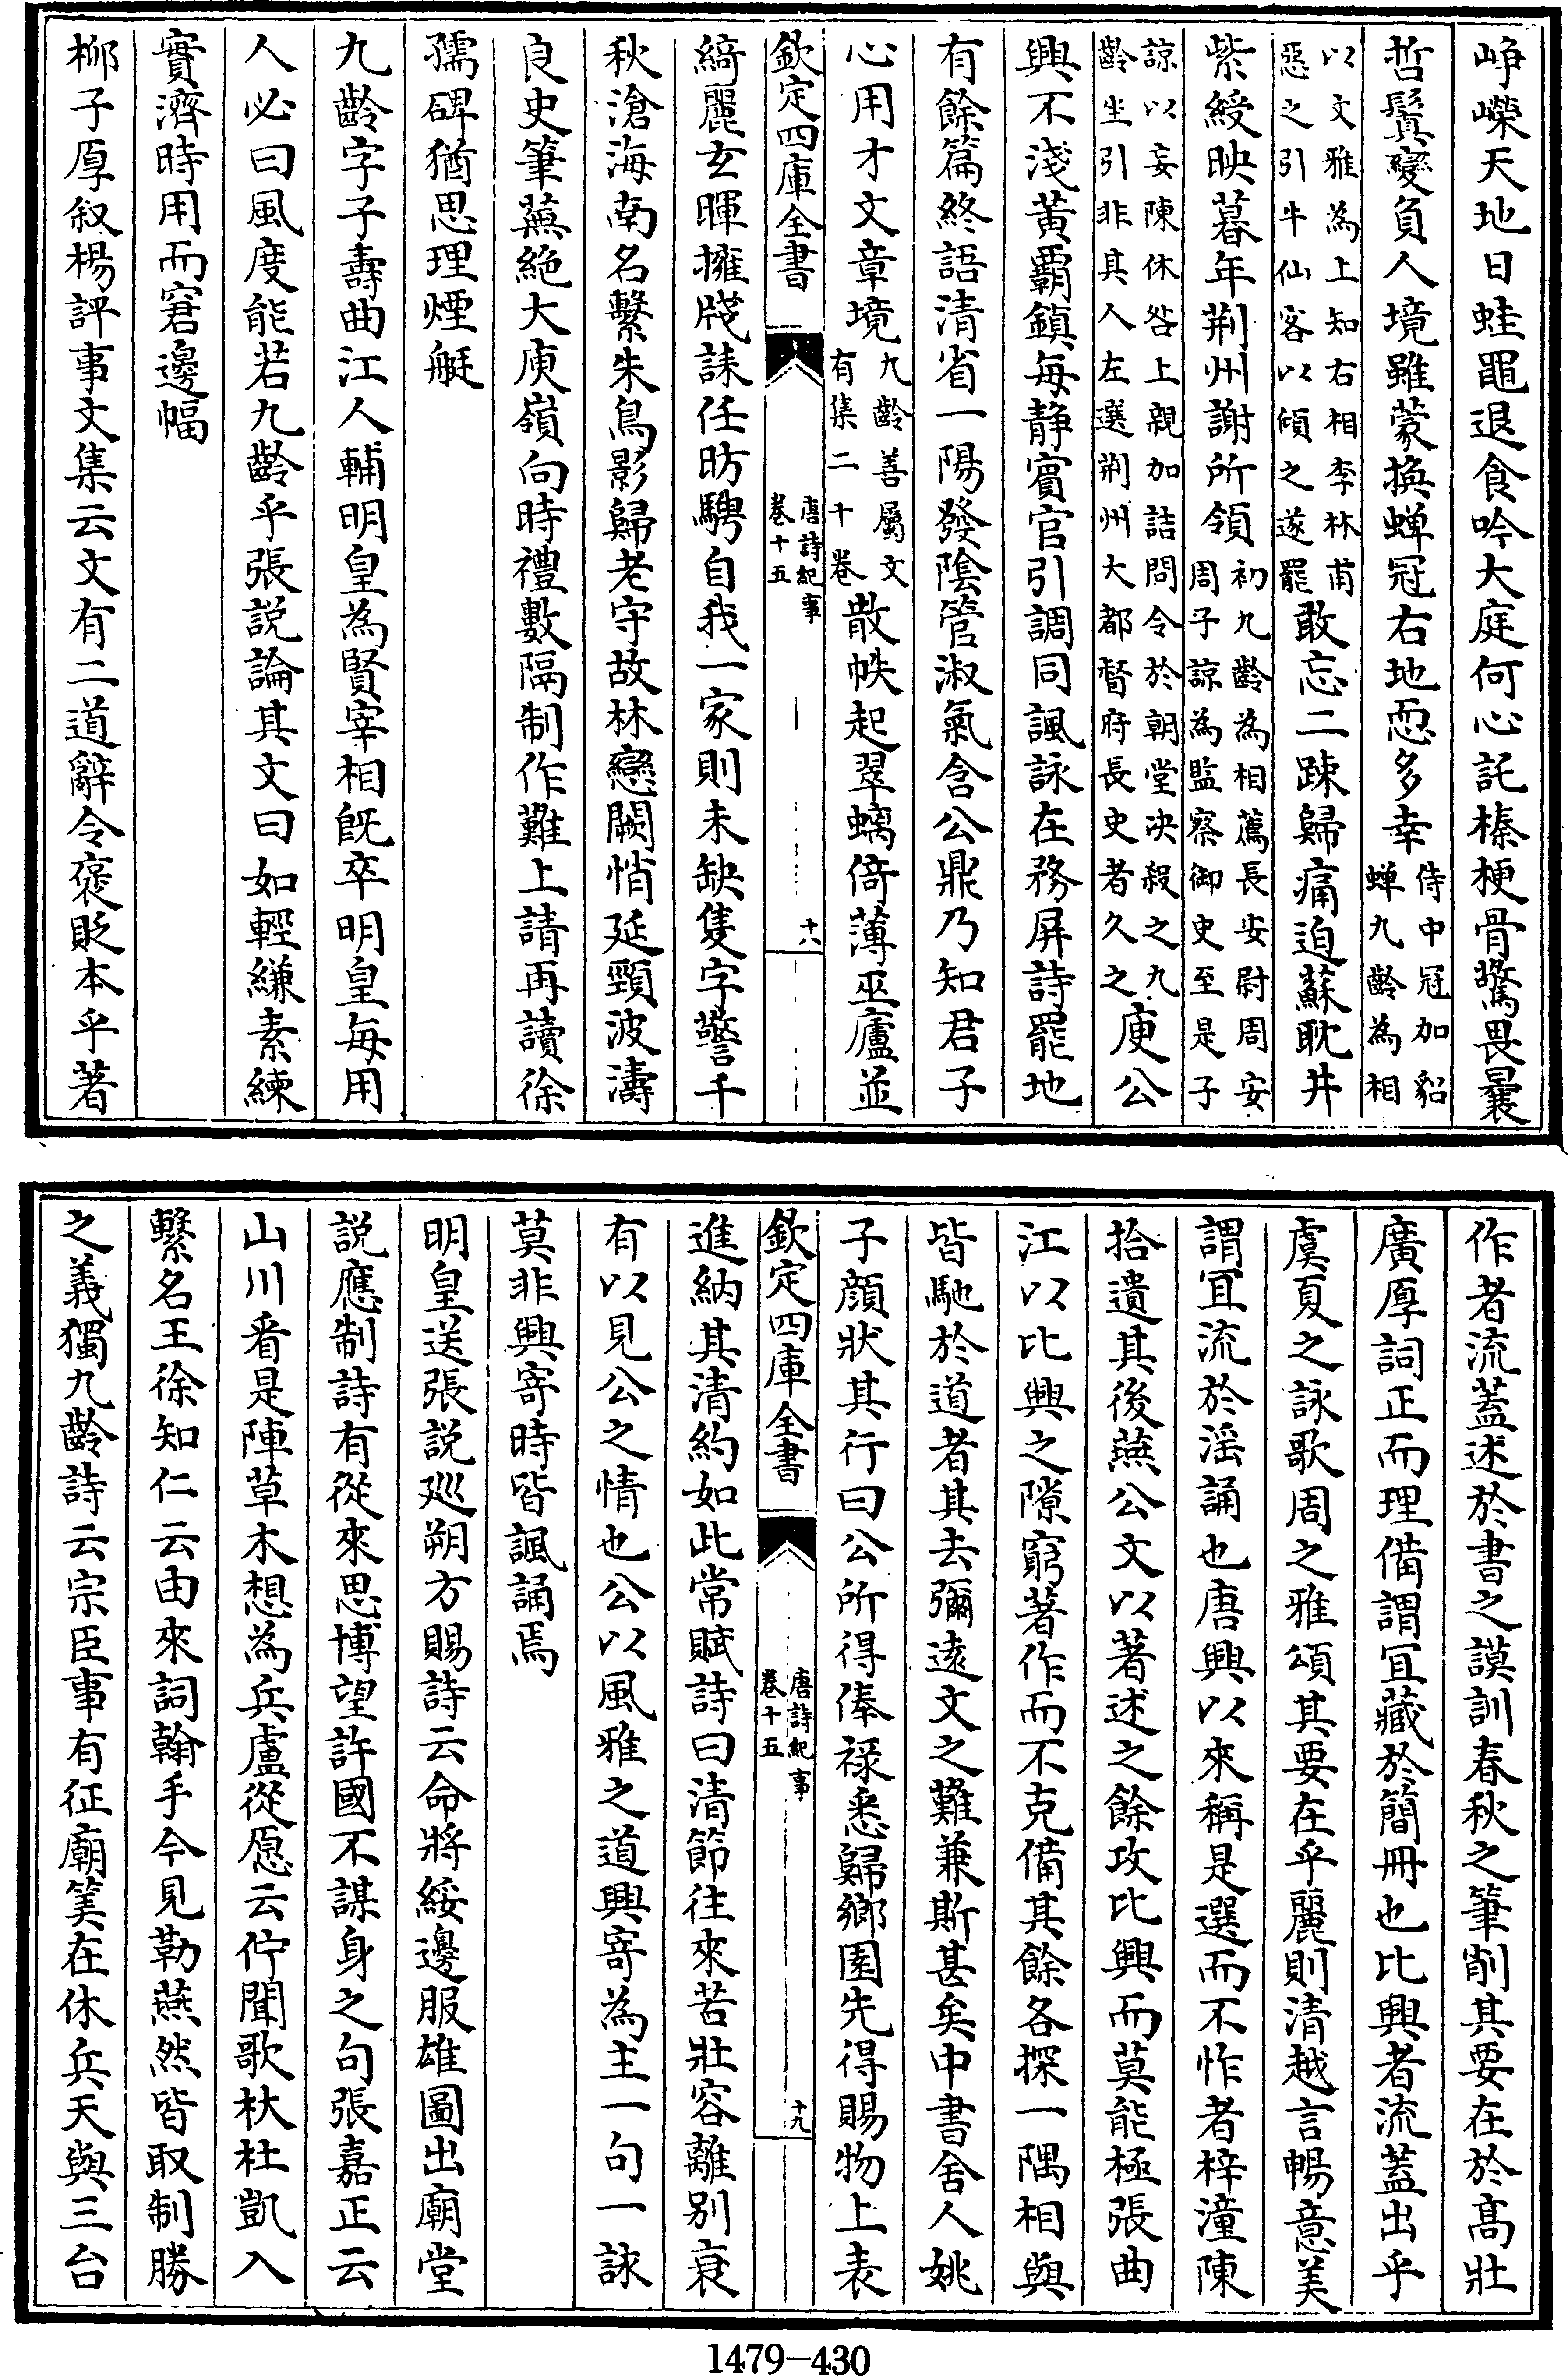 崢嶸天地日蛙黽退食吟大庭何心託榛梗骨驚畏曩
哲鬒變負人境雖蒙換蟬冠右地恧多幸侍中冠加貂蟬九齡為相
以文雅為上知右相李林甫惡之引牛仙客以傾之遂罷敢忘二疎歸痛迫蘇耽井
紫綬映暮年荆州謝所領初九齡為相薦長安尉周安周子諒為監察御史至是子
諒以妄陳休咎上親加詰問令於朝堂决殺之九齡坐引非其人左選荆州大都督府長史者久之庾公
興不淺黃覇鎮每静賔官引調同諷詠在務屏詩罷地
有餘篇終語清省一陽發陰管淑氣含公鼎乃知君子
心用才文章境九齡善屬文有集二十卷散帙起翠螭倚薄巫廬並
欽定四庫全書 唐詩紀事卷十五 十八
綺麗玄暉擁牋誄任昉騁自我一家則未缺隻字警千
秋滄海南名繫朱鳥影歸老守故林戀闕悄延頸波濤
良史筆蕪絶大庾嶺向時禮數隔制作難上請再讀徐
孺碑猶思理煙艇
九齡字子壽曲江人輔明皇為賢宰相旣卒明皇每用
人必曰風度能若九齡乎張説論其文曰如輕縑素練
實濟時用而窘邊幅
柳子厚叙楊評事文集云文有二道辭令褒貶本乎著
作者流蓋述於書之謨訓春秋之筆削其要在於髙壯
廣厚詞正而理備謂宜藏於簡冊也比興者流蓋出乎
虞夏之詠歌周之雅頌其要在乎麗則清越言暢意美
謂宜流於謡誦也唐興以來稱是選而不怍者梓潼陳
拾遺其後燕公文以著述之餘攻比興而莫能極張曲
江以比興之隙窮著作而不克備其餘各探一隅相與
皆馳於道者其去彌遠文之難兼斯甚矣中書舍人姚
子顔狀其行曰公所得俸禄悉歸鄉園先得賜物上表
欽定四庫全書 唐詩紀事卷十五 十九
進納其清約如此常賦詩曰清節往來苦壯容離别衰
有以見公之情也公以風雅之道興寄為主一句一詠
莫非興寄時皆諷誦焉
明皇送張説廵朔方賜詩云命將綏邊服雄圖出廟堂
説應制詩有從來思博望許國不謀身之句張嘉正云
山川看是陣草木想為兵盧從愿云佇聞歌杕杜凱入
繫名王徐知仁云由來詞翰手今見勒燕然皆取制勝
之義獨九齡詩云宗臣事有征廟筭在休兵天與三台
1479-430